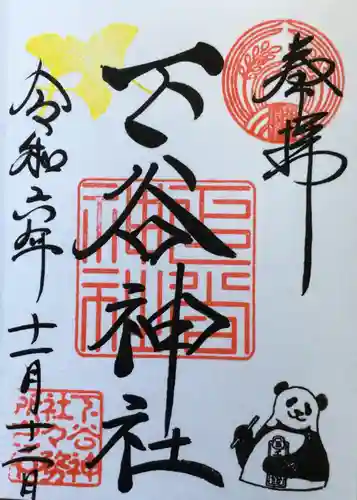 奉拝
下谷神社
令和六年
十一月十二日
下谷神社
下谷神
社々務
所之印